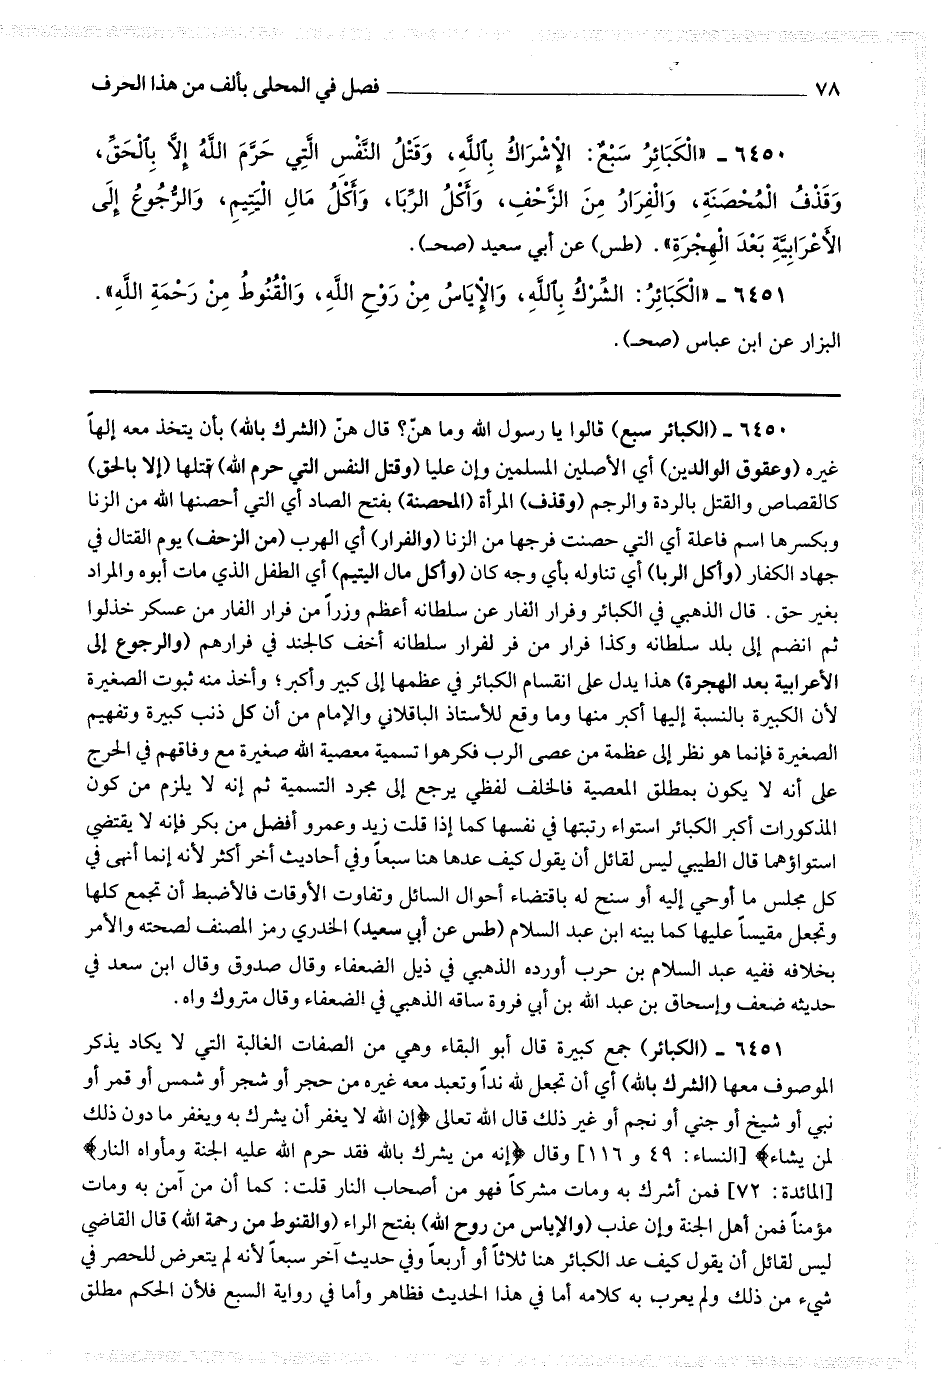 ٧٨ ــــــــــــ فصل في المحلى بألف من هذا الحرف
٦٤٥٠ ـ «الْكَبَائِرُ سَبْعٌ: الإِشْرَاكُ بِاللَّهِ، وَقَتْلُ النَّفْسِ الَّتِي حَرَّمَ اللَّهُ إِلَّا بِالْحَقِّ،
وَقَذْفُ الْمُحْصَنَةِ، وَالْفِرَارُ مِنَ الزَّحْفِ، وَأَكْلُ الرِّبَا، وَأَكْلُ مَالِ الْيَتِيمِ، وَالرُّجُوعُ إِلَى
الأَعْرَابِيَّةِ بَعْدَ الْهِجْرَةِ». (طس) عن أبي سعيد (صحـ).
٦٤٥١ ـ «الْكَبَائِرُ: الشِّرْكُ بِاللَّهِ، وَالإِيَاسُ مِنْ رَوْحِ اللَّهِ، وَالْقُنُوطُ مِنْ رَحْمَةِ اللَّهِ».
البزار عن ابن عباس (صحـ).
٦٤٥٠ ـ (الكبائر سبع) قالوا يا رسول الله وما هنّ؟ قال هنّ (الشرك بالله) بأن يتخذ معه إلهاً
غيره (وعقوق الوالدين) أي الأصلين المسلمين وإن عليا (وقتل النفس التي حرم الله) قتلها (إلا بالحق)
كالقصاص والقتل بالردة والرجم (وقذف) المرأة (المحصنة) بفتح الصاد أي التي أحصنها الله من الزنا
وبكسرها اسم فاعلة أي التي حصنت فرجها من الزنا (والفرار) أي الهرب (من الزحف) يوم القتال في
جهاد الكفار (وأكل الربا) أي تناوله بأي وجه كان (وأكل مال اليتيم) أي الطفل الذي مات أبوه والمراد
بغير حق. قال الذهبي في الكبائر وفرار الفار عن سلطانه أعظم وزراً من فرار الفار من عسكر خذلوا
ثم انضم إلى بلد سلطانه وكذا فرار من فر لفرار سلطانه أخف كالجند في فرارهم (والرجوع إلى
الأعرابية بعد الهجرة) هذا يدل على انقسام الكبائر في عظمها إلى كبير وأكبر؛ وأخذ منه ثبوت الصغيرة
لأن الكبيرة بالنسبة إليها أكبر منها وما وقع للأستاذ الباقلاني والإمام من أن كل ذنب كبيرة وتفهيم
الصغيرة فإنما هو نظر إلى عظمة من عصى الرب فكرهوا تسمية معصية الله صغيرة مع وفاقهم في الحرج
على أنه لا يكون بمطلق المعصية فالخلف لفظي يرجع إلى مجرد التسمية ثم إنه لا يلزم من كون
المذكورات أكبر الكبائر استواء رتبتها في نفسها كما إذا قلت زيد وعمرو أفضل من بكر فإنه لا يقتضي
استواؤهما قال الطيبي ليس لقائل أن يقول كيف عدها هنا سبعاً وفي أحاديث أخر أكثر لأنه إنما أنهى في
كل مجلس ما أوحي إليه أو سنح له باقتضاء أحوال السائل وتفاوت الأوقات فالأضبط أن تجمع كلها
وتجعل مقيساً عليها كما بينه ابن عبد السلام (طس عن أبي سعيد) الخدري رمز المصنف لصحته والأمر
بخلافه ففيه عبد السلام بن حرب أورده الذهبي في ذيل الضعفاء وقال صدوق وقال ابن سعد في
حديثه ضعف وإسحاق بن عبد الله بن أبي فروة ساقه الذهبي في الضعفاء وقال متروك واه.
٦٤٥١ ـ (الكبائر) جمع كبيرة قال أبو البقاء وهي من الصفات الغالبة التي لا يكاد يذكر
الموصوف معها (الشرك بالله) أي أن تجعل لله نداً وتعبد معه غيره من حجر أو شجر أو شمس أو قمر أو
نبي أو شيخ أو جني أو نجم أو غير ذلك قال الله تعالى ﴿إن الله لا يغفر أن يشرك به ويغفر ما دون ذلك
لمن يشاء﴾ [النساء: ٤٩ و ١١٦] وقال ﴿إنه من يشرك بالله فقد حرم الله عليه الجنة ومأواه النار﴾
[المائدة: ٧٢] فمن أشرك به ومات مشركاً فهو من أصحاب النار قلت: كما أن من آمن به ومات
مؤمناً فمن أهل الجنة وإن عذب (والإياس من روح الله) بفتح الراء (والقنوط من رحمة الله) قال القاضي
ليس لقائل أن يقول كيف عد الكبائر هنا ثلاثاً أو أربعاً وفي حديث آخر سبعاً لأنه لم يتعرض للحصر في
شيء من ذلك ولم يعرب به كلامه أما في هذا الحديث فظاهر وأما في رواية السبع فلأن الحكم مطلق